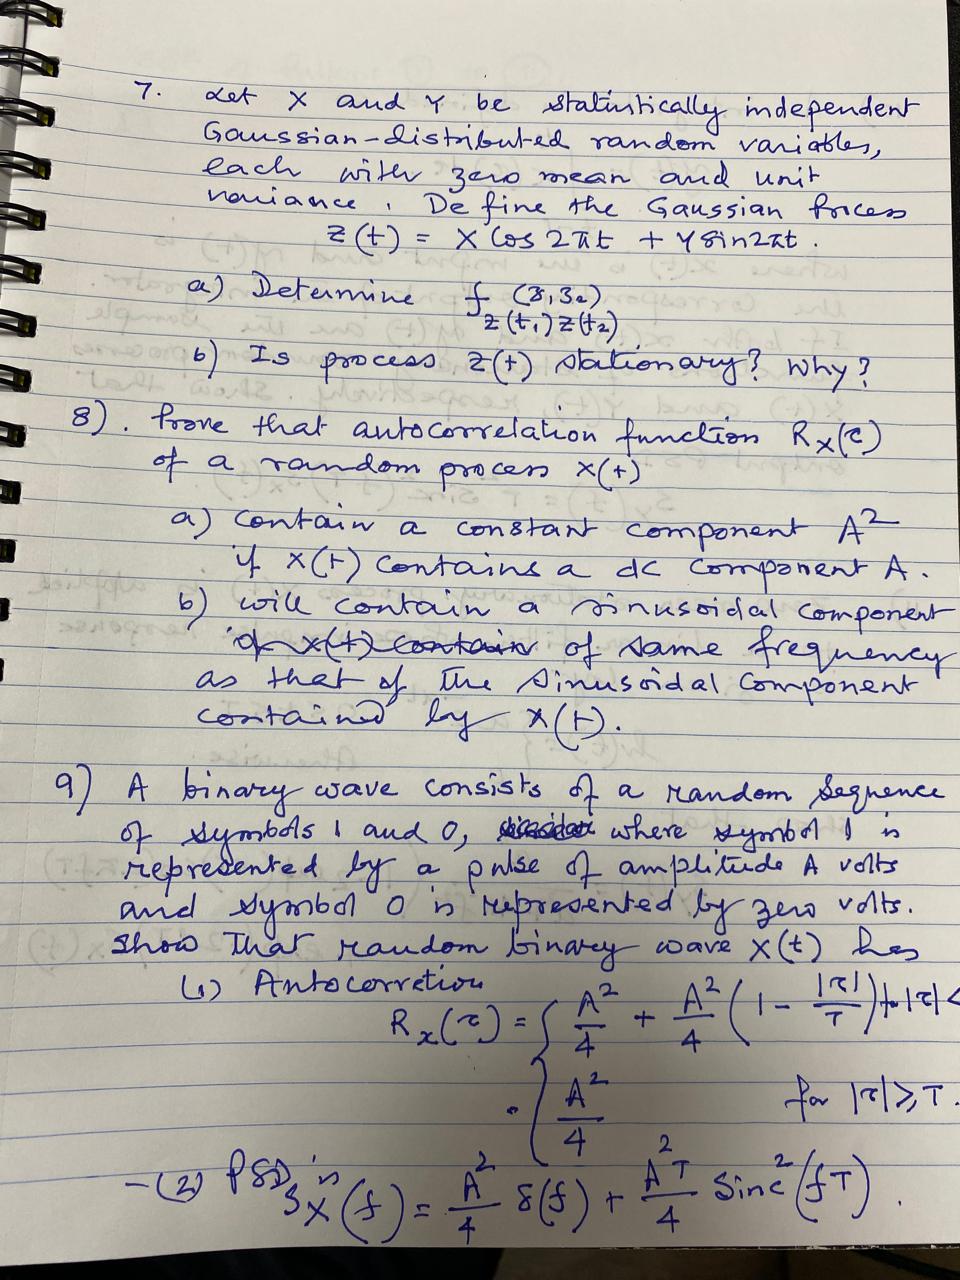 7. Let X and Y be statistically independent
Gaussian-distributed random variables,
each with zero mean and unit
variance. Define the Gaussian Process
Z(t) = X Cos 2πt + Y Sin2πt.
a) Determine f Z(t₁)Z(t₂) (z₁z₂)
b) Is process Z(t) stationary? Why?
8). Prove that autocorrelation function Rx(τ)
of a random process X(t)
a) contain a constant component A²
if X(t) contains a dc component A.
b) will contain a sinusoidal component
of same frequency
as that of the sinusoidal component
contained by X(t).
9) A binary wave consists of a random sequence
of symbols 1 and 0, where symbol 1 is
represented by a pulse of amplitude A volts
and symbol 0 is represented by zero volts.
Show That random binary wave X(t) has
(1) Autocorretion
Rx(τ) = { A²/4 + A²/4 (1 - |τ|/T) for |τ|<
A²/4 for |τ| ≥ T.
-(2) PSD is
Sx(f) = A²/4 δ(f) + A²T/4 Sinc²(fT).